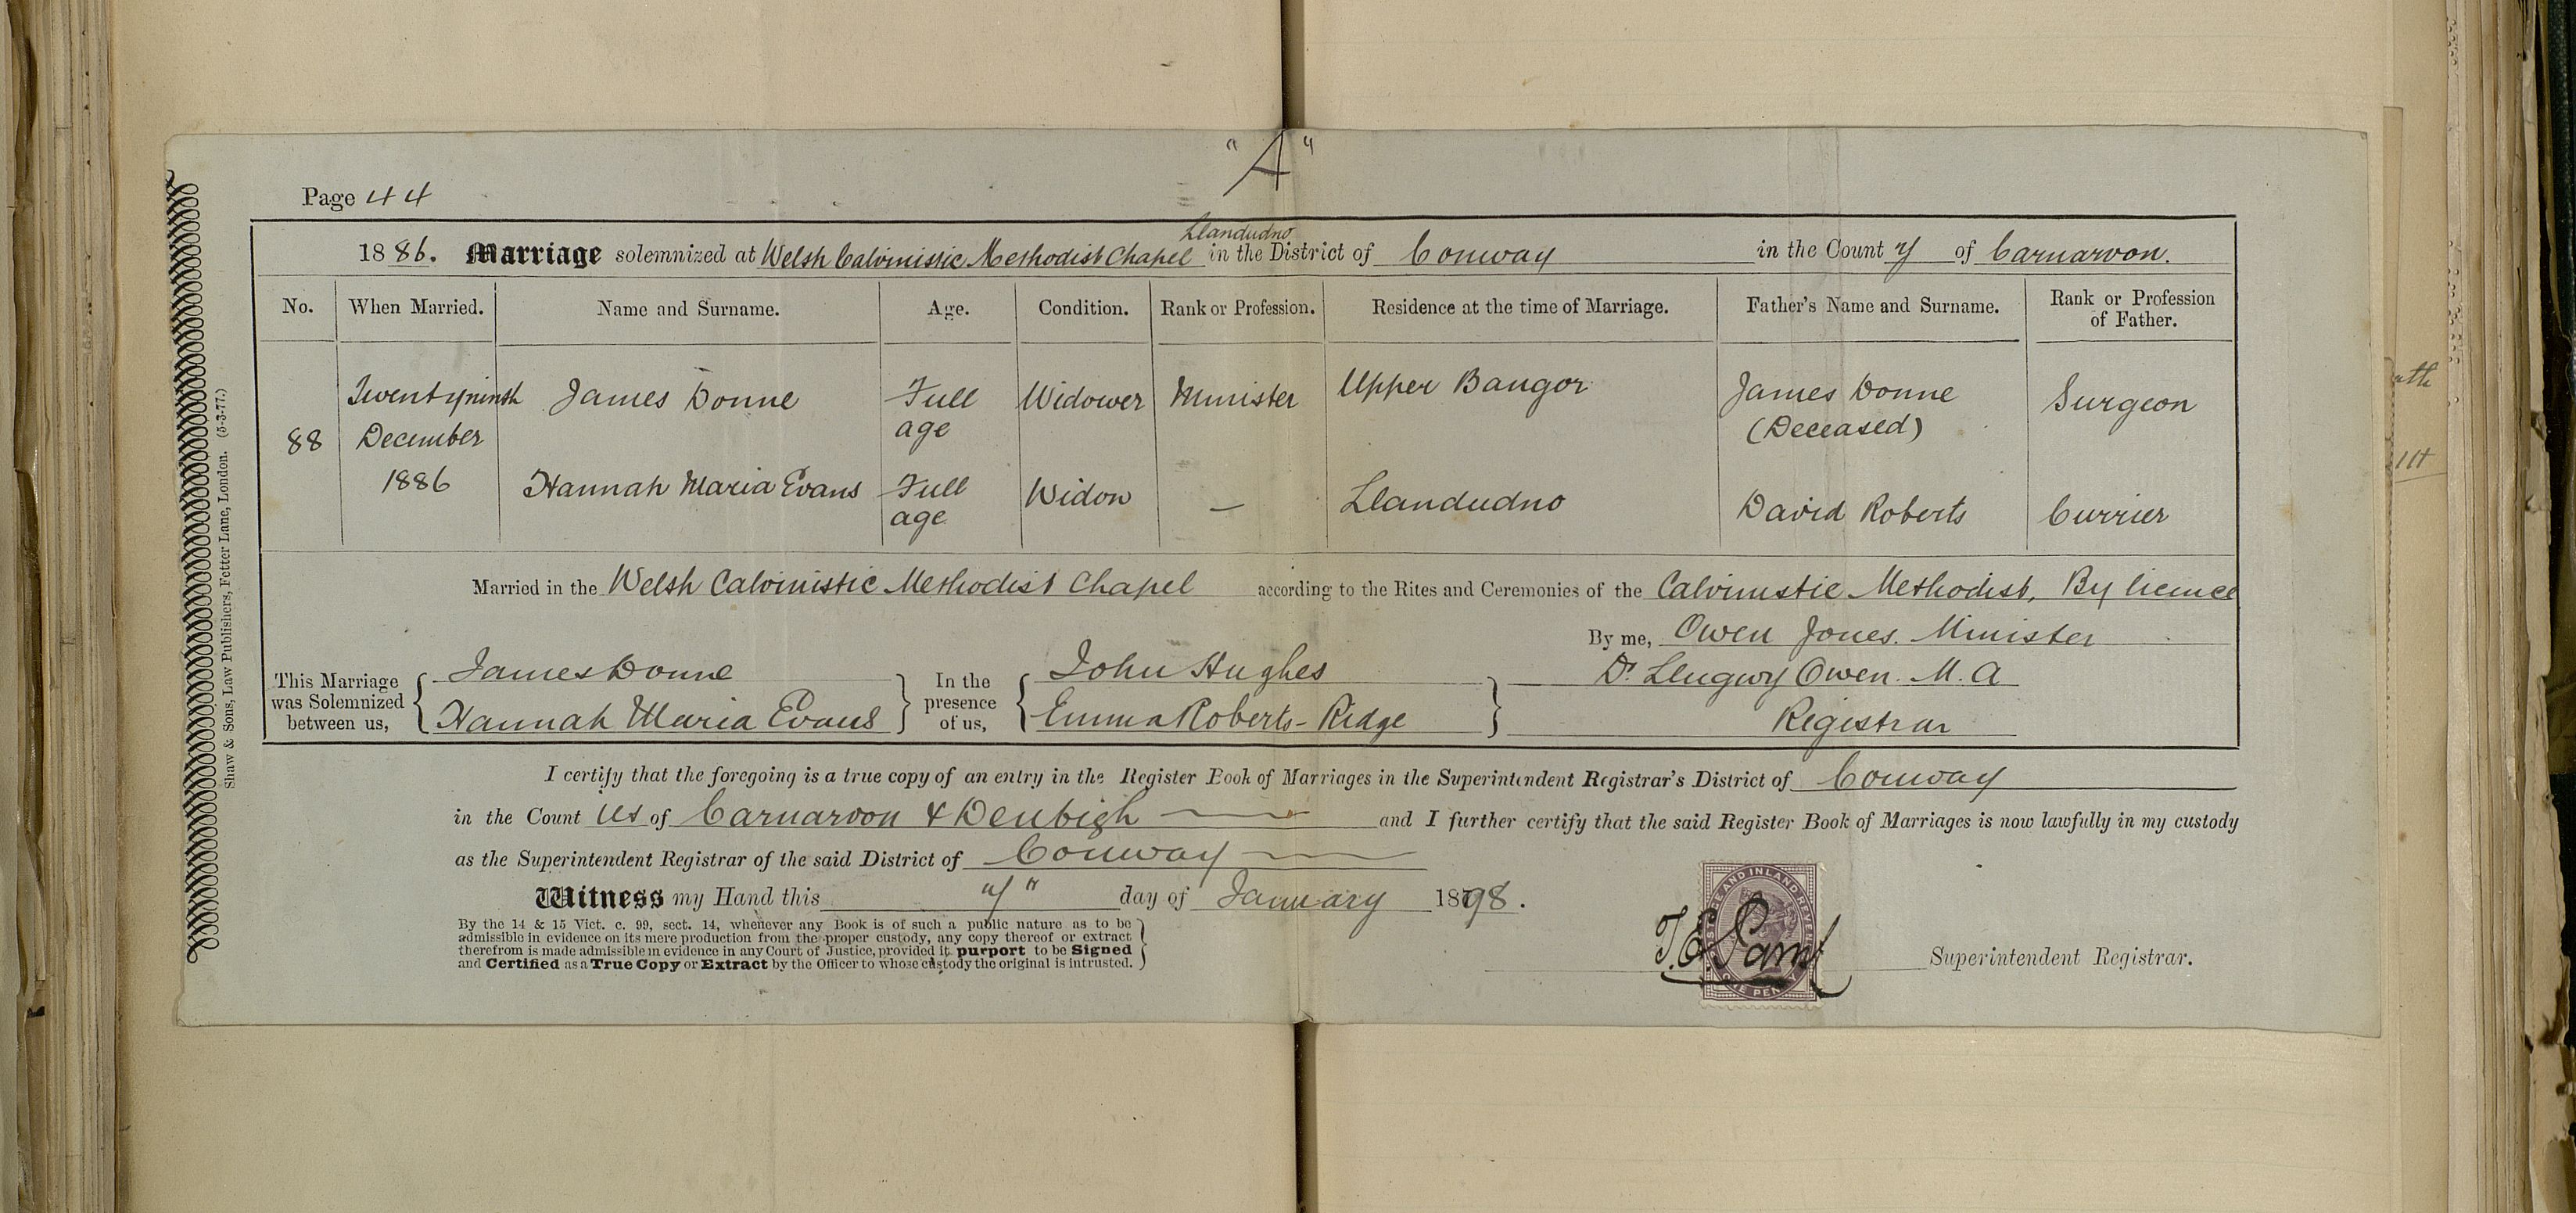 "A"
Page 44
Llandudno
1886. Marriage solemnized at Welsh Calvinistic Methodist Chapel in the District of Conway in the County of Carnarvon.
No. When Married. Name and Surname. Age. Condition. Rank or Profession. Residence at the time of Marriage. Father's Name and Surname. Rank or Profession of Father.
88 Twentyninth December 1886
James Donne Full age Widower Minister Upper Bangor James Donne (Deceased) Surgeon
Hannah Maria Evans Full age Widow — Llandudno David Roberts Currier
Married in the Welsh Calvinistic Methodist Chapel according to the Rites and Ceremonies of the Calvinistic Methodist, By licence
By me, Owen Jones. Minister
This Marriage was Solemnized between us, James Donne Hannah Maria Evans
In the presence of us, John Hughes Emma Roberts-Ridge
Dd. Llugwy Owen. M.A
Registrar
I certify that the foregoing is a true copy of an entry in the Register Book of Marriages in the Superintendent Registrar's District of Conway
in the Counties of Carnarvon & Denbigh and I further certify that the said Register Book of Marriages is now lawfully in my custody
as the Superintendent Registrar of the said District of Conway
Witness my Hand this day of January 1898.
By the 14 & 15 Vict. c. 99, sect. 14, whenever any Book is of such a public nature as to be
admissible in evidence on its mere production from the proper custody, any copy thereof or extract
therefrom is made admissible in evidence in any Court of Justice, provided it purport to be Signed
and Certified as a True Copy or Extract by the Officer to whose custody the original is intrusted.
T. E.
Superintendent Registrar.
POSTAGE AND INLAND REVENUE
ONE PENNY
Shaw & Sons, Law Publishers, Fetter Lane, London. (5-3-77.)